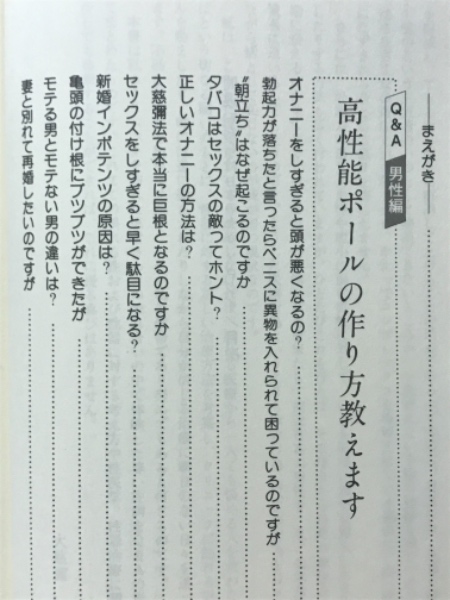 まえがき
Q&A 男性編
高性能ポールの作り方教えます
オナニーをしすぎると頭が悪くなるの?
勃起力が落ちたと言ったらペニスに異物を入れられて困っているのですが
〝朝立ち〟はなぜ起こるのですか
タバコはセックスの敵ってホント?
正しいオナニーの方法は?
大慈彌法で本当に巨根となるのですか
セックスをしすぎると早く駄目になる?
新婚インポテンツの原因は?
亀頭の付け根にブツブツができたが
モテる男とモテない男の違いは?
妻と別れて再婚したいのですが